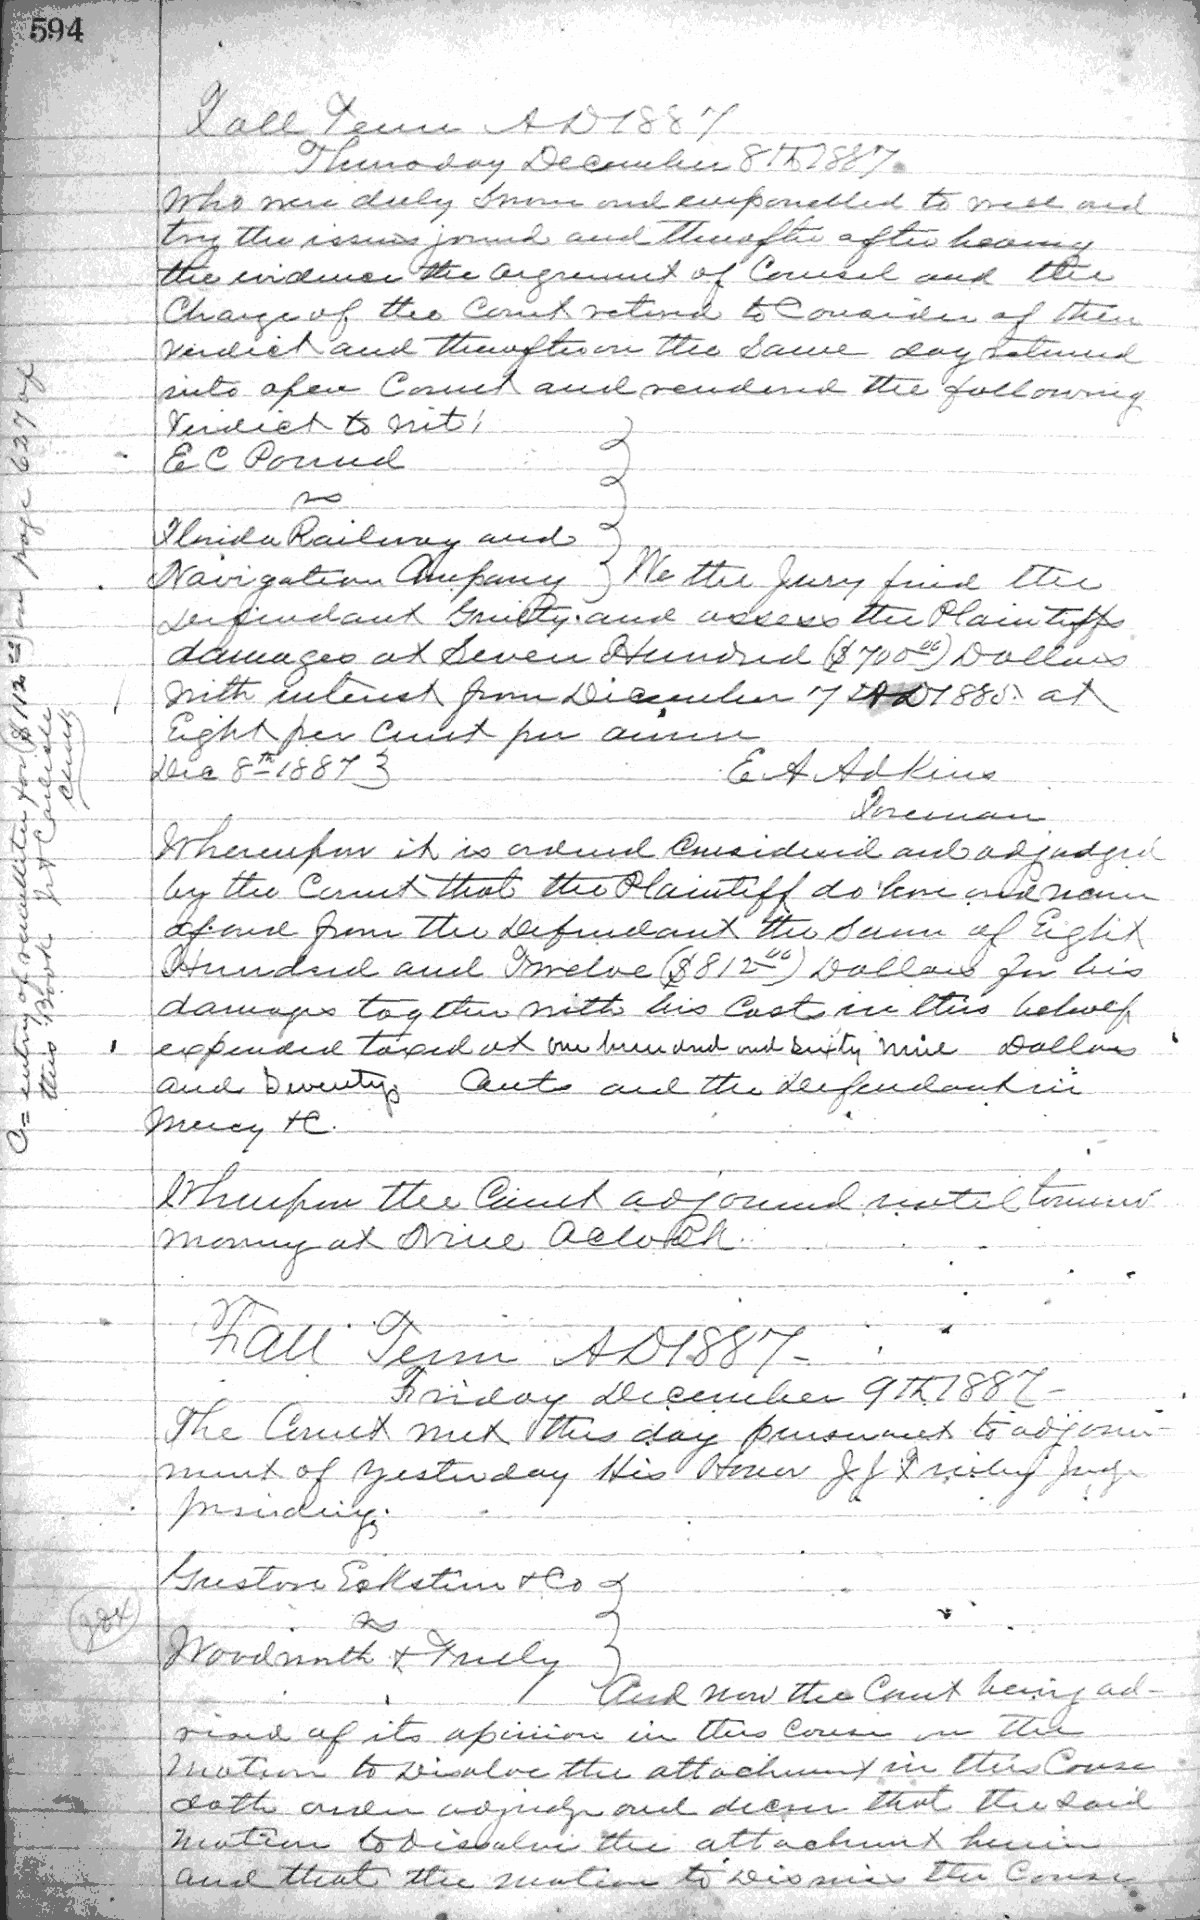 594
Fall Term AD 1887
Thursday December 8th 1887.
Who were duly sworn and empanelled to well and
try the issues joined and thereafter after hearing
the evidence the argument of Counsel and the
Charge of the Court retired to Consider of their
verdict and thereafter on the same day returned
into open Court and rendered the following
Verdict to wit!
E C Pound
vs
Florida Railway and
Navigation Company } We the Jury find the
Defendant Guilty. and assess the Plaintiffs
damages at Seven Hundred ($700 00) Dollars
with interest from December 7 AD 1885. at
Eight per Cent per annum
Dec 8th 1887 } E A Adkins
Foreman
Whereupon it is ordered Considered and adjudged
by the Court that the Plaintiff do have and recover
of and from the Defendant the Sum of Eight
Hundred and Twelve ($812 00) Dollars for his
damages together with his Costs in this behalf
expended taxed at one hundred and Sixty Nine Dollars
and Seventy Cents and the Defendant in
Mercy &C.
Whereupon the Court adjourned until tomorrow
morning at Nine Oclock.
Fall Term AD 1887-
Friday December 9th 1887-
The Court met this day pursuant to adjourn-
ment of yesterday His Honor J J Judge
presiding.
Gustave Eckstein & Co
vs
Woodworth &
And now the Court being ad-
vised of its opinion in this Cause on the
Motion to Disolve the attachment in this Cause
doth order adjudge and decree that the said
Motion to Dissolve the attachment herein
and that the motion to Dismiss the Cause
a= entry of remittitur for ($112 00) on page 627 of
this Book
Clerk